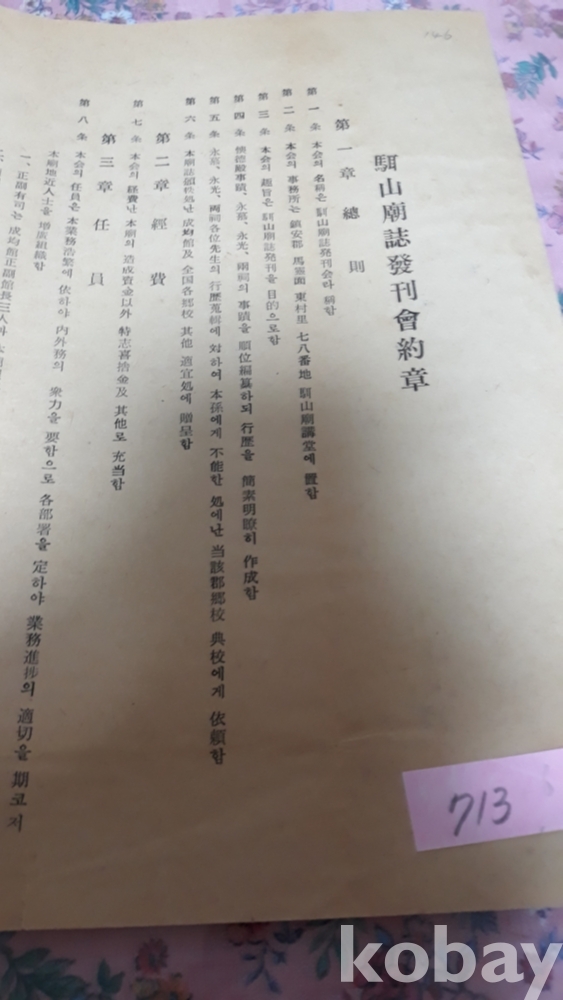 馹山廟誌發刊會約章
第一章 總則
第一条 本会의 名稱은 馹山廟誌発刊会라 稱함
第二条 本会의 事務所는 鎮安郡 馬霊面 東村里 七八番地 馹山廟講堂에 置함
第三条 本会의 趣旨은 馹山廟誌発刊을 目的으로함
第四条 懐德殿事蹟、永慕、永光、兩祠의 事蹟을 順位編纂하되 行歷을 簡素明瞭히 作成함
第五条 永慕、永光、両祠各位先生의 行歷蒐輯에 対하여 本孫에게 不能한 処에난 当該郡郷校 典校에게 依頼함
第六条 本廟誌頒秩処난 成均館及 全国各郷校 其他 適宜処에 贈呈함
第二章 經費
第七条 本会의 経費난 本廟의 造成資金以外 特志喜捨金及 其他로 充当함
第三章 任員
第八条 本会의 任員은 本業務浩繁에 依하야 内外務의 衆力을 要함으로 各部署을 定하야 業務進捗의 適切을 期코저
本廟地近人士을 増広組織함
一、正副有司는 成均館正副館長三人과
146
713
kobay